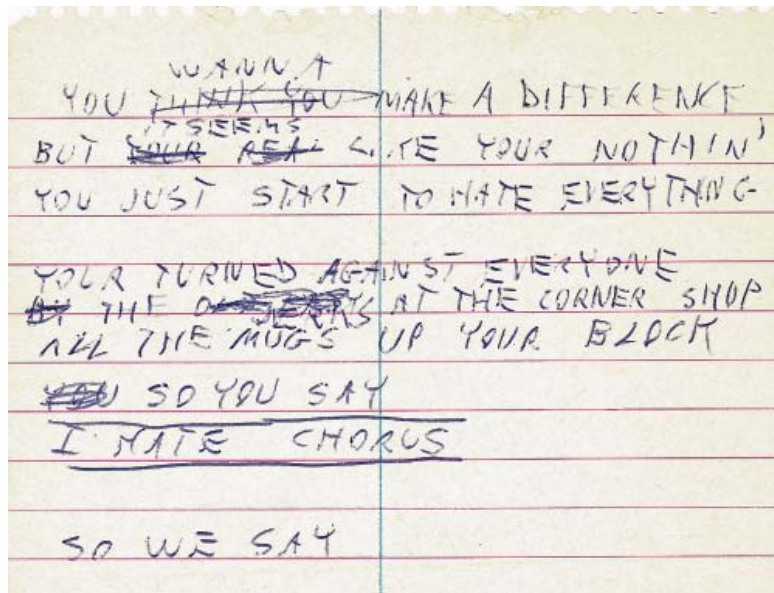 WANNA
YOU THINK YOU MAKE A DIFFERENCE
IT SEEMS
BUT YOUR REAL LIKE YOUR NOTHIN'
YOU JUST START TO HATE EVERYTHING
YOUR TURNED AGAINST EVERYONE
THE AT THE CORNER SHOP
JERKS
ALL THE MUGS UP YOUR BLOCK
YOU SO YOU SAY
I HATE CHORUS
SO WE SAY